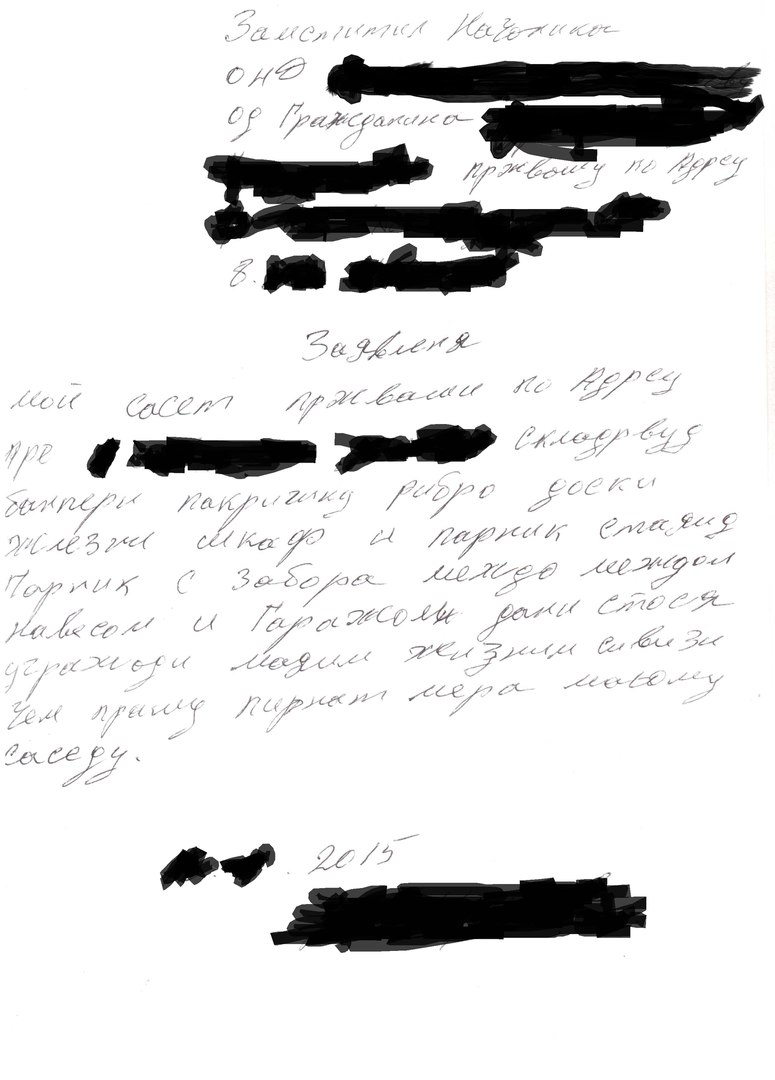 Заместител Началника
ОНД
од Гражданина
пржвому по Адресу
8.
Заявленя
мой сасет пржваши по Адресу
пре складрвуд
бампери пакришку рибро доски
железни шкаф и парник стаяид
Парник с Забора междо междом
навесом и Гаражом дани стося
угражоди мадим жизним сивизи
Чем прашу пирнат мера макому
саседу.
2015